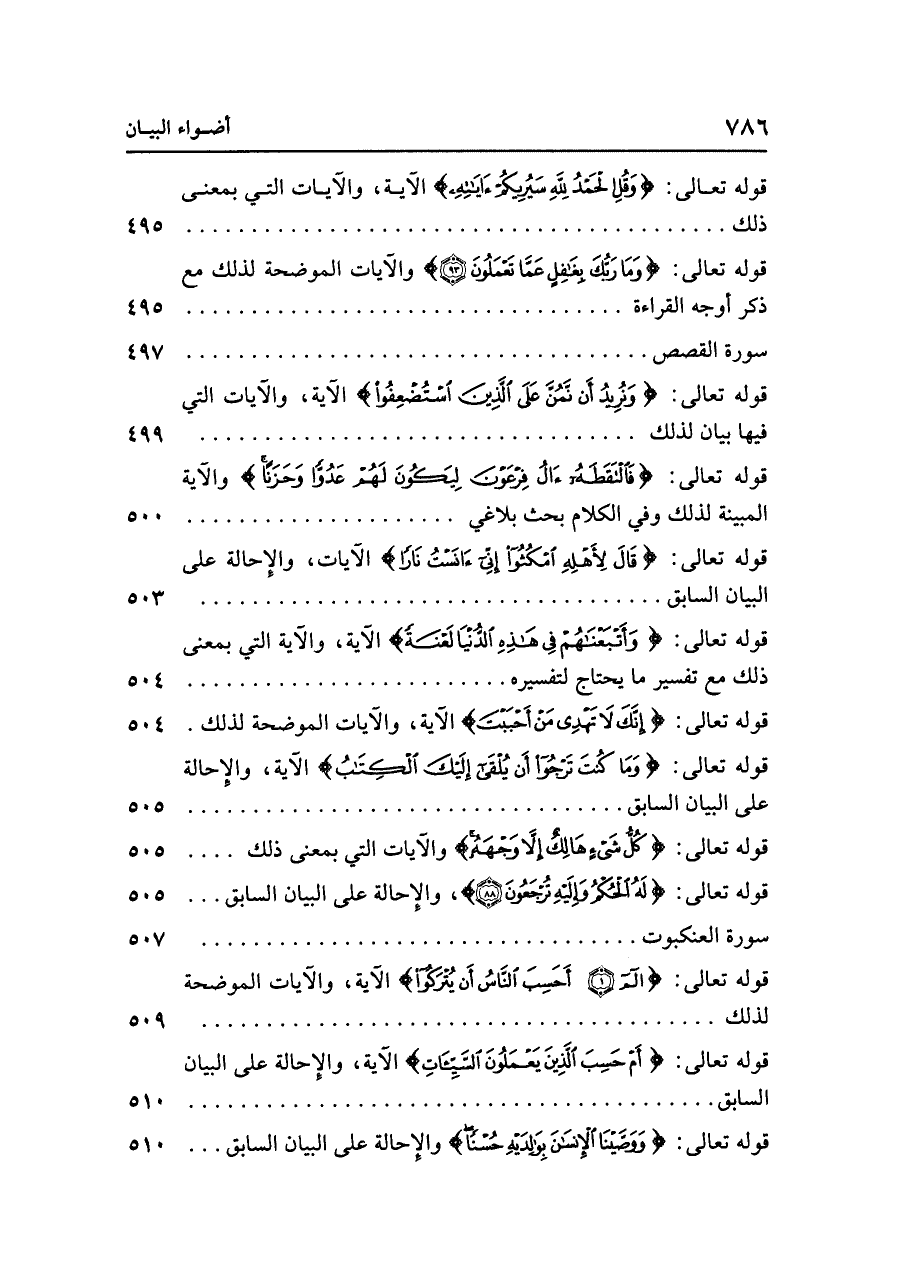 ٧٨٦ أضـواء البيـان
قوله تعـالى: ﴿وَقُلِ الْحَمْدُ لِلَّهِ سَيُرِيكُمْ ءَايَٰتِهِۦ﴾ الآيـة، والآيـات التـي بمعنـى
ذلك . . . . . . . . . . . . . . . . . . . . ٤٩٥
قوله تعالى: ﴿وَمَا رَبُّكَ بِغَٰفِلٍ عَمَّا تَعْمَلُونَ ٩٣﴾ والآيات الموضحة لذلك مع
ذكر أوجه القراءة . . . . . . . . . . . . . . . . . . . . ٤٩٥
سورة القصص . . . . . . . . . . . . . . . . . . . . ٤٩٧
قوله تعالى: ﴿وَنُرِيدُ أَن نَّمُنَّ عَلَى ٱلَّذِينَ ٱسْتُضْعِفُوا۟﴾ الآية، والآيات التي
فيها بيان لذلك . . . . . . . . . . . . . . . . . . . . ٤٩٩
قوله تعالى: ﴿فَٱلْتَقَطَهُۥٓ ءَالُ فِرْعَوْنَ لِيَكُونَ لَهُمْ عَدُوًّا وَحَزَنًا ۗ﴾ والآية
المبينة لذلك وفي الكلام بحث بلاغي . . . . . . . . . . . . . . . . . . . . ٥٠٠
قوله تعالى: ﴿قَالَ لِأَهْلِهِ ٱمْكُثُوٓا۟ إِنِّىٓ ءَانَسْتُ نَارًا﴾ الآيات، والإحالة على
البيان السابق . . . . . . . . . . . . . . . . . . . . ٥٠٣
قوله تعالى: ﴿وَأَتْبَعْنَٰهُمْ فِى هَٰذِهِ ٱلدُّنْيَا لَعْنَةً ۖ﴾ الآية، والآية التي بمعنى
ذلك مع تفسير ما يحتاج لتفسيره . . . . . . . . . . . . . . . . . . . . ٥٠٤
قوله تعالى: ﴿إِنَّكَ لَا تَهْدِى مَنْ أَحْبَبْتَ﴾ الآية، والآيات الموضحة لذلك . ٥٠٤
قوله تعالى: ﴿وَمَا كُنتَ تَرْجُوٓا۟ أَن يُلْقَىٰٓ إِلَيْكَ ٱلْكِتَٰبُ﴾ الآية، والإحالة
على البيان السابق . . . . . . . . . . . . . . . . . . . . ٥٠٥
قوله تعالى: ﴿كُلُّ شَىْءٍ هَالِكٌ إِلَّا وَجْهَهُۥ ۚ﴾ والآيات التي بمعنى ذلك . . . . ٥٠٥
قوله تعالى: ﴿لَهُ ٱلْحُكْمُ وَإِلَيْهِ تُرْجَعُونَ ٨٨﴾، والإحالة على البيان السابق . . . ٥٠٥
سورة العنكبوت . . . . . . . . . . . . . . . . . . . . ٥٠٧
قوله تعالى: ﴿الٓمٓ ١ أَحَسِبَ ٱلنَّاسُ أَن يُتْرَكُوٓا۟﴾ الآية، والآيات الموضحة
لذلك . . . . . . . . . . . . . . . . . . . . ٥٠٩
قوله تعالى: ﴿أَمْ حَسِبَ ٱلَّذِينَ يَعْمَلُونَ ٱلسَّيِّـَٔاتِ﴾ الآية، والإحالة على البيان
السابق . . . . . . . . . . . . . . . . . . . . ٥١٠
قوله تعالى: ﴿وَوَصَّيْنَا ٱلْإِنسَٰنَ بِوَٰلِدَيْهِ حُسْنًا ۖ﴾ والإحالة على البيان السابق . . . ٥١٠